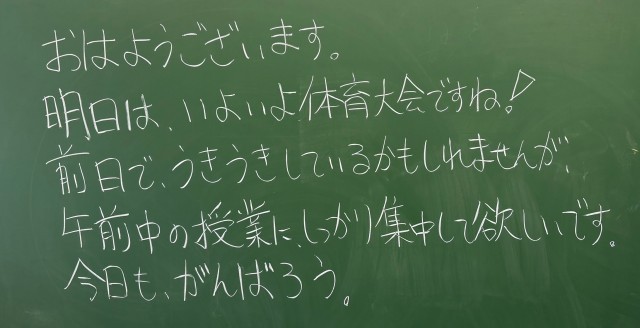 おはようございます。
明日は、いよいよ体育大会ですね!
前日で、うきうきしているかもしれませんが、
午前中の授業に、しっかり集中して欲しいです。
今日も、がんばろう。